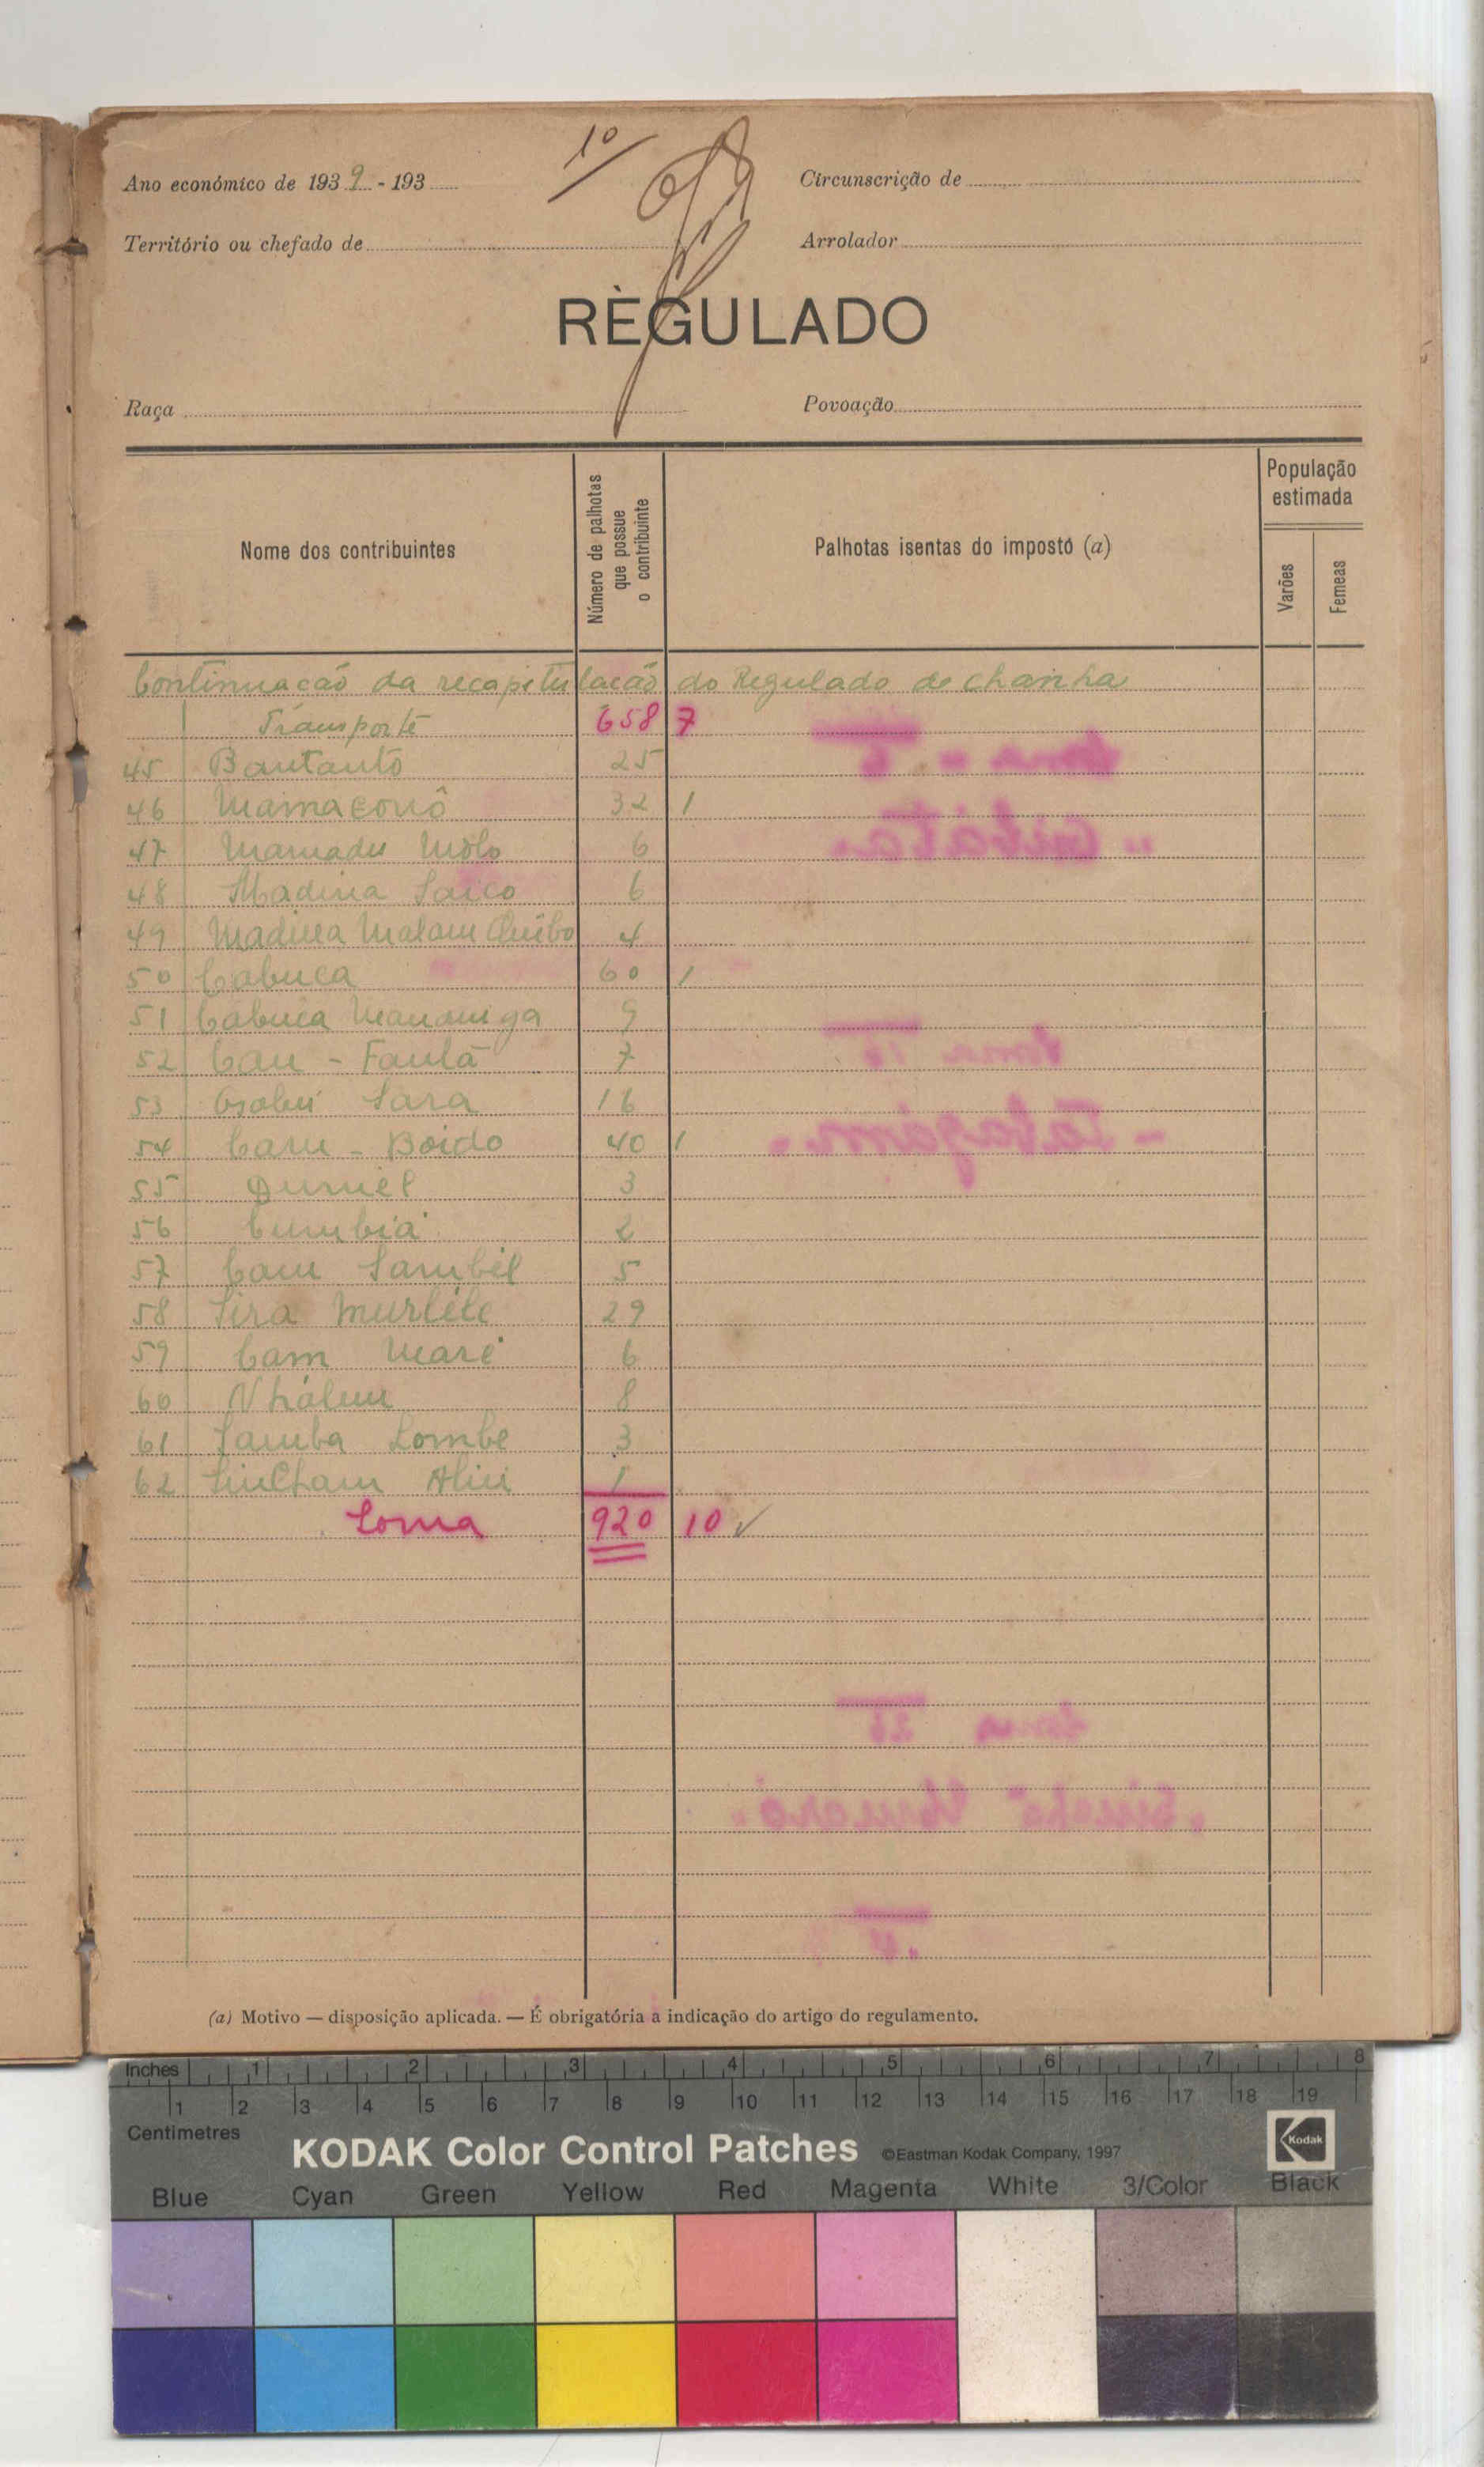 10
Ano económico de 1939 - 193
Circunscrição de
Território ou chefado de
Arrolador
RÈGULADO
Raça
Povoação
Nome dos contribuintes
Número de palhotas que possue o contribuinte
Palhotas isentas do imposto (a)
População estimada
Varões
Femeas
Continuacão da recapitulacão do Regulado de chanha
Transporte 658 7
45 Bantantô 25
46 Mamaconô 32 1
47 Mamadu Molo 6
48 Madina Saico 6
49 Madina Malam Quibo 4
50 Cabuca 60 1
51 Cabuca Mandinga 9
52 Cau - Faulã 7
53 Gabu Sara 16
54 Cam - Boido 40 1
55 Dumel 3
56 Cumbiá 2
57 Cam Sambél 5
58 Sira 29
59 Cam Maré 6
60 Nhálem 8
61 Samba Lombe 3
62 Sincham Aliu 1
Soma 920 10 ✓
(a) Motivo — disposição aplicada. — É obrigatória a indicação do artigo do regulamento.
Inches 1 2 3 4 5 6 7 8
1 2 3 4 5 6 7 8 9 10 11 12 13 14 15 16 17 18 19
Centimetres
KODAK Color Control Patches ©Eastman Kodak Company, 1997 Kodak
Blue Cyan Green Yellow Red Magenta White 3/Color Black